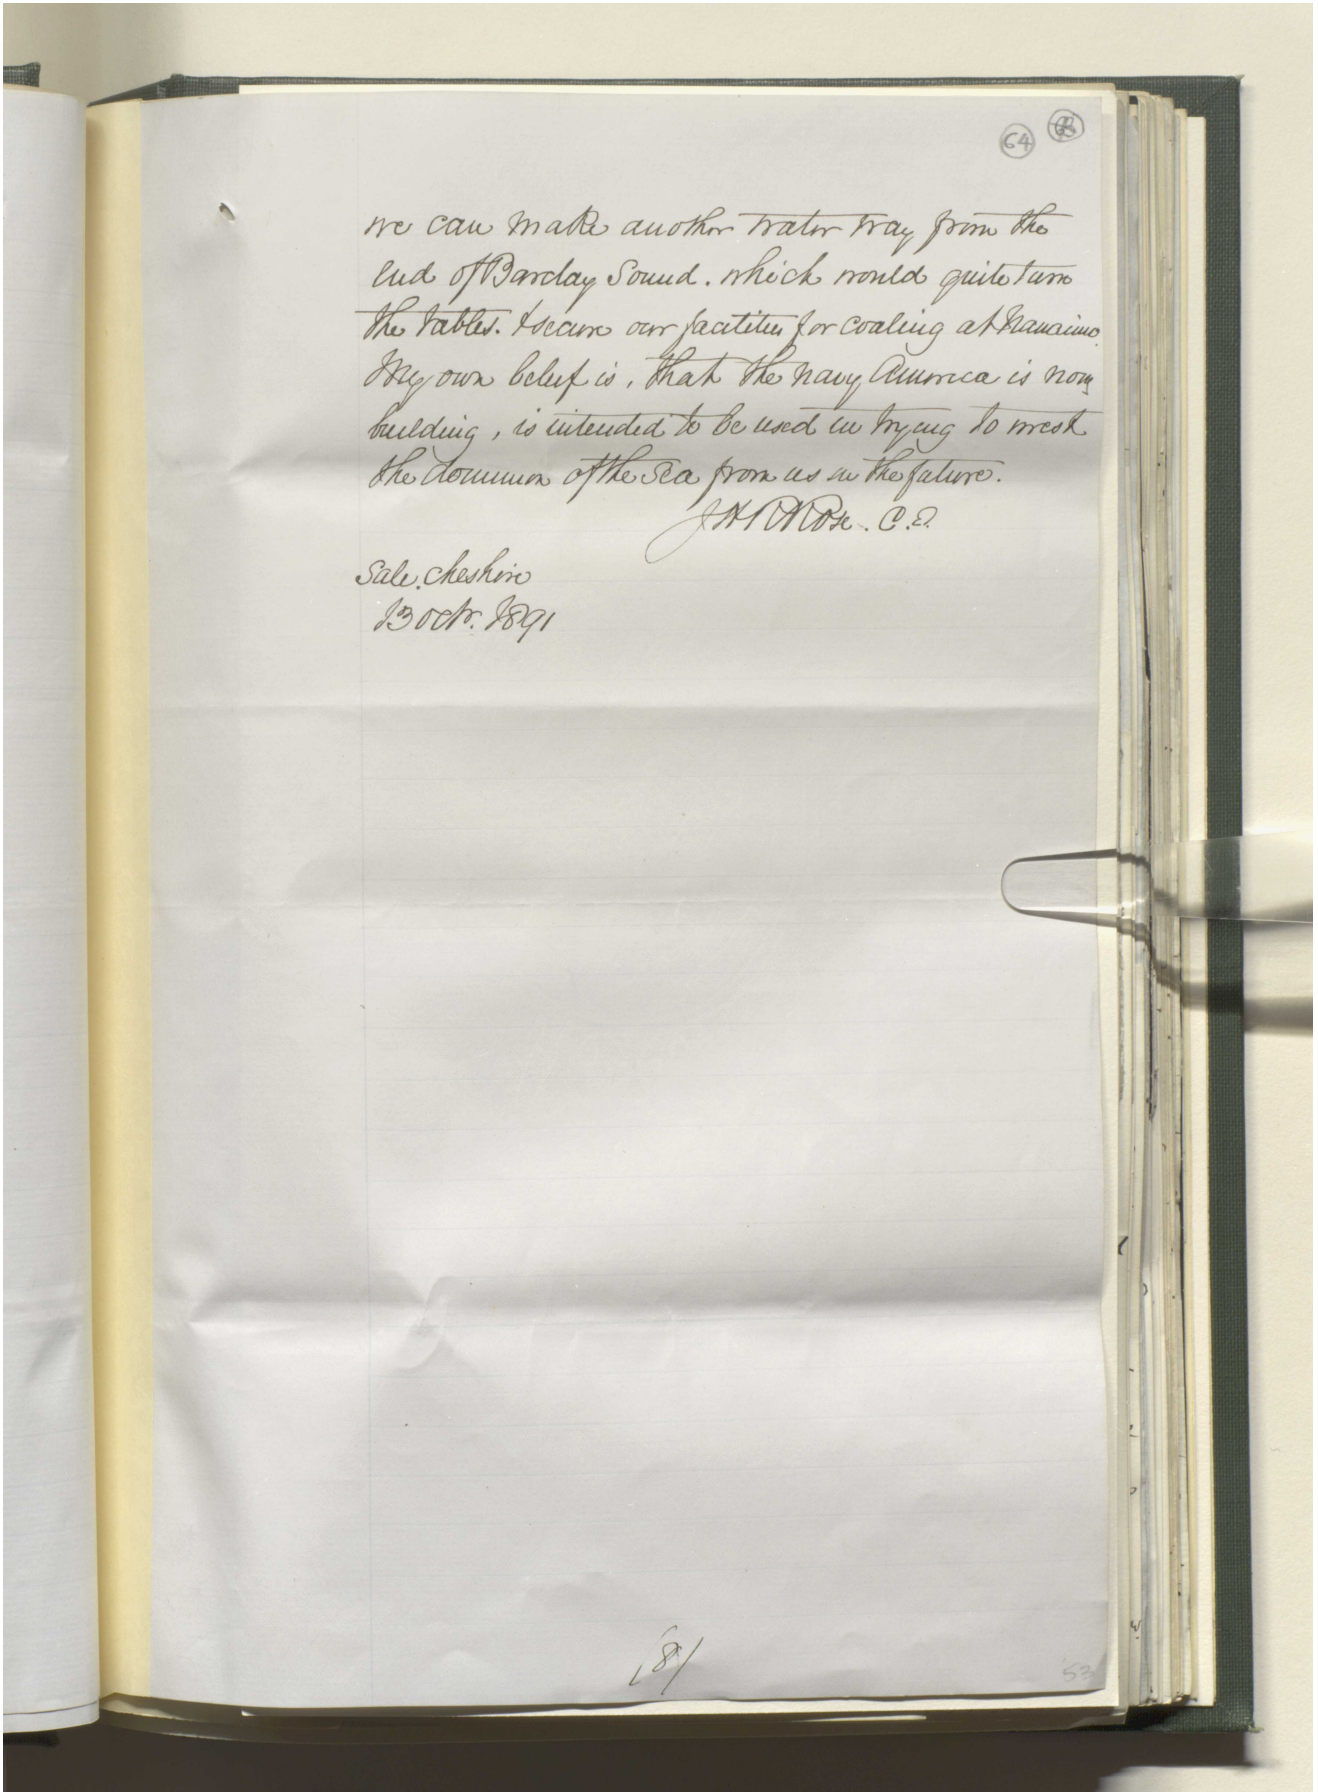 64
we can make another water way from the
end of Barclay Sound. which would quite turn
the tables. & secure our facilities for coaling at Nanaimo.
My own belief is, that the navy America is now
building, is intended to be used in trying to wrest
the dominion of the sea from us in the future.
J H R Rose. C.E.
Sale. Cheshire
13 Octr. 1891
(8)
53